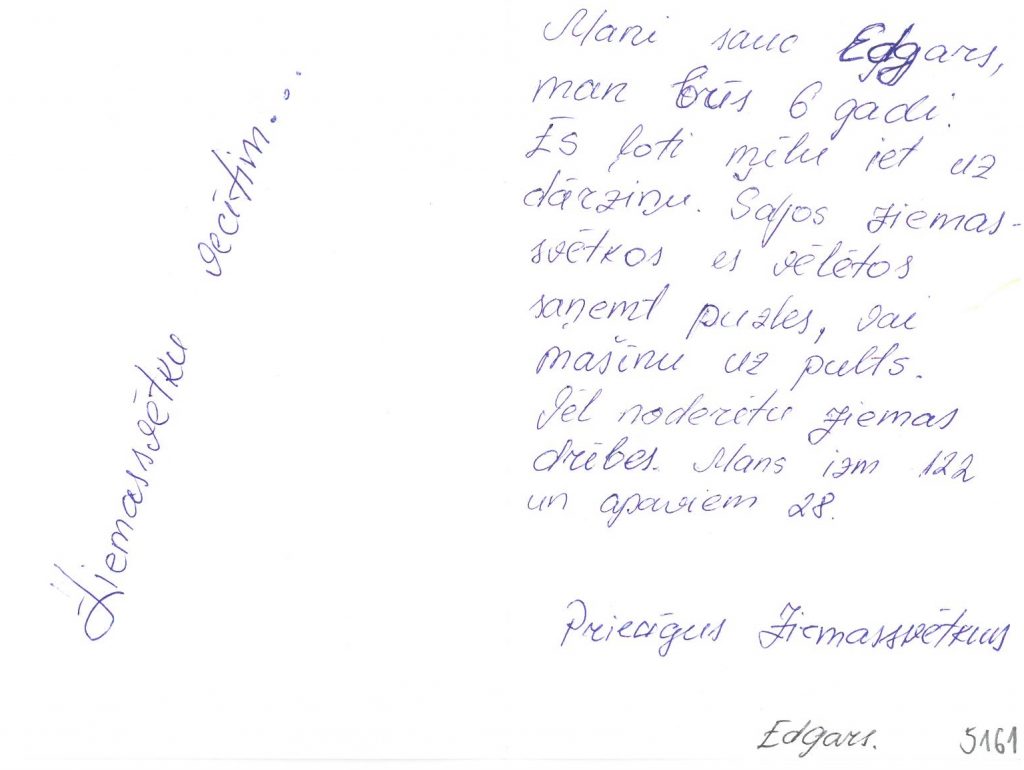 Ziemassvētku vecītim...
Mani sauc Edgars,
man būs 6 gadi.
Es ļoti mīlu iet uz
dārziņu. Šajos ziemas-
svētkos es vēlētos
saņemt puzles, vai
mašīnu uz pults.
Vēl noderētu ziemas
drēbes. Mans izm 122
un apaviem 28.
Priecīgus Ziemassvētkus
Edgars. 5161